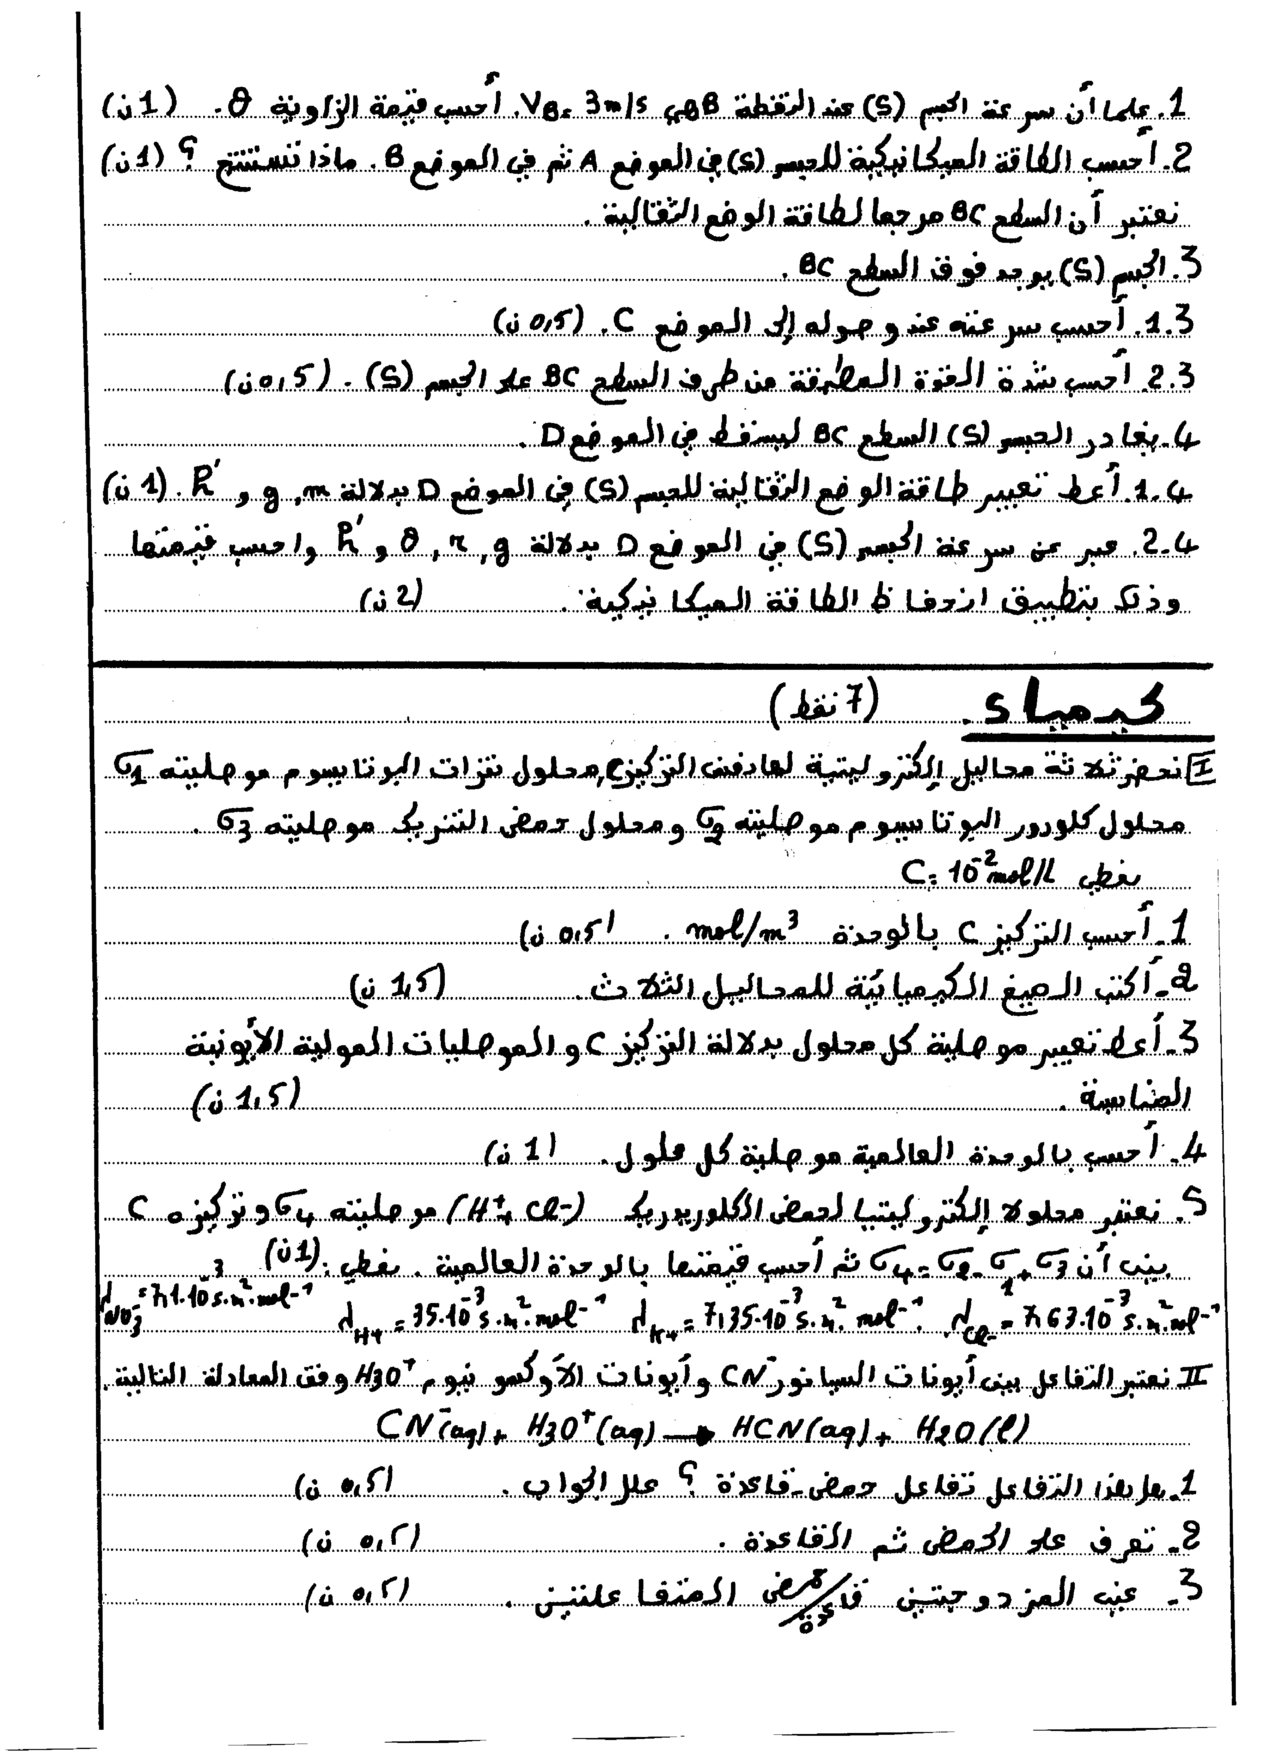 1. علما أن سرعة الجسم (S) عند النقطة B هي VB= 3m/s. أحسب قيمة الزاوية θ. (1 ن)
2. أحسب الطاقة الميكانيكية للجسم (S) في الموضع A ثم في الموضع B. ماذا تستنتج ؟ (1 ن)
نعتبر أن السطح BC مرجعا لطاقة الوضع الثقالية.
3. الجسم (S) يوجد فوق السطح BC.
1.3. أحسب سرعته عند وصوله إلى الموضع C. (0,5 ن)
2.3. أحسب شدة القوة المطبقة من طرف السطح BC على الجسم (S). (0,5 ن)
4. يغادر الجسم (S) السطح BC ليسقط في الموضع D.
1.4. أعط تعبير طاقة الوضع الثقالية للجسم (S) في الموضع D بدلالة m, g و h'. (1 ن)
2.4. عبر عن سرعة الجسم (S) في الموضع D بدلالة g, r, θ و h' واحسب قيمتها
وذلك بتطبيق انحفاظ الطاقة الميكانيكية. (2 ن)
كيمياء. (7 نقط)
I نحضر ثلاثة محاليل إلكتروليتية لها نفس التركيز C, محلول نترات البوتاسيوم موصليته σ1
محلول كلورور البوتاسيوم موصليته σ2 ومحلول حمض النتريك موصليته σ3.
نعطي C= 10⁻² mol/L
1. أحسب التركيز C بالوحدة mol/m³. (0,5 ن)
2. أكتب الصيغ الكيميائية للمحاليل الثلاث. (1,5 ن)
3. أعط تعبير موصلية كل محلول بدلالة التركيز C و الموصليات المولية الأيونية
المناسبة. (1,5 ن)
4. أحسب بالوحدة العالمية موصلية كل محلول. (1 ن)
5. نعتبر محلولا إلكتروليتيا لحمض الكلوريدريك (H⁺+ Cl⁻) موصليته σ4 وتركيزه C
بين أن σ4=σ2-σ1+σ3 ثم أحسب قيمتها بالوحدة العالمية. نعطي: (1 ن)
λCl⁻ = 7,63.10⁻³ s.m².mol⁻¹ . λK+ = 7,35.10⁻³ s.m².mol⁻¹ λH+ = 35.10⁻³ s.m².mol⁻¹ λNO3⁻ = 7,1.10⁻³ s.m².mol⁻¹
II نعتبر التفاعل بين أيونات السيانور CN⁻ وأيونات الأوكسونيوم H3O⁺ وفق المعادلة التالية.
CN⁻(aq) + H3O⁺(aq) → HCN(aq) + H2O(l)
1. هل هذا التفاعل تفاعل حمض-قاعدة ؟ علل الجواب. (0,5 ن)
2. تعرف على الحمض ثم القاعدة. (0,5 ن)
3. عين المزدوجتين قاعدة/حمض المتفاعلتين. (0,5 ن)